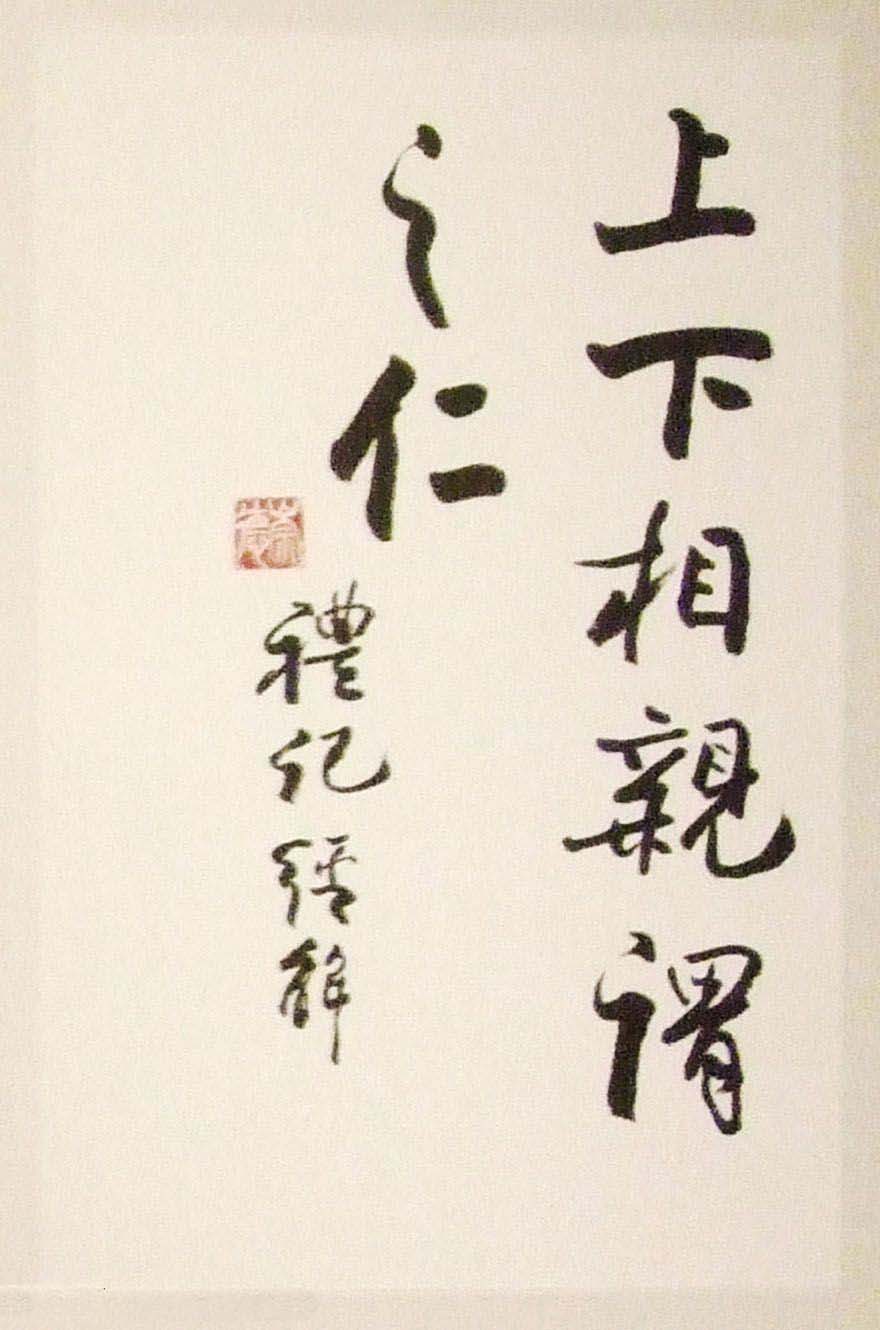 上下相親謂
之仁
禮記經解